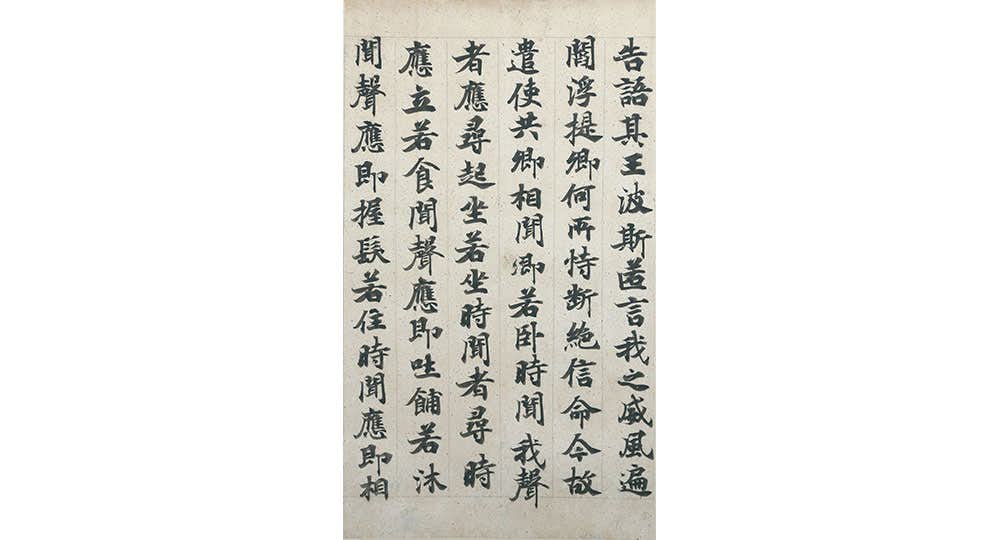 告語其王波斯匿言我之威風遍
閻浮提卿何所恃断絶信命今故
遣使共卿相聞卿若卧時聞我聲
者應尋起坐若坐時聞者尋時
應立若食聞聲應即吐餔若沐
聞聲應即握髮若住時聞應即相